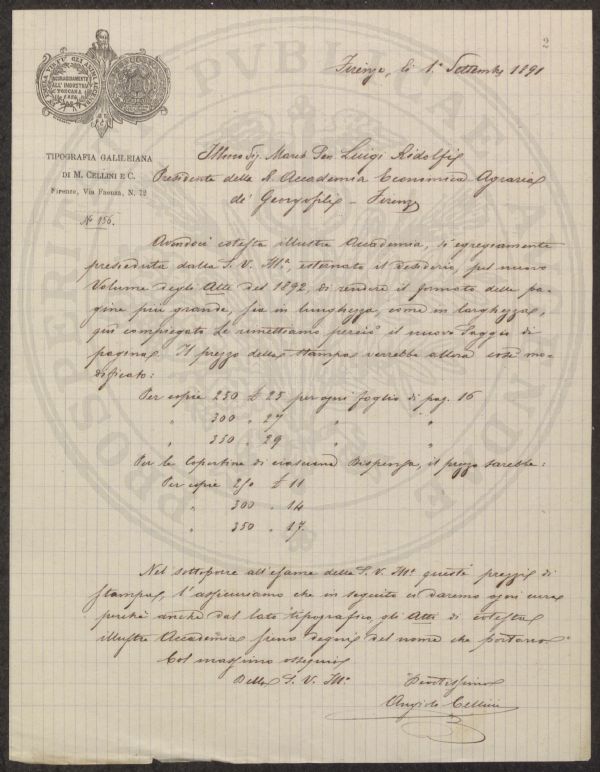 2
Firenze, li 1º Settembre 1891
INCORAGGIAMENTO
ALL'INDUSTRIA
TOSCANA
1854
TIPOGRAFIA GALILEIANA
DI M. CELLINI E C.
Firenze, Via Faenza, N. 72
Nº 156.
Illmo Sig. March Sen. Luigi Ridolfi
Presidente della R. Accademia Economica Agraria
de' Georgofili - Firenze
Avendoci cotesta illustre Accademia, sì egregiamente
presieduta dalla S. V. Ill.ª, esternato il desiderio, pel nuovo
Volume degli Atti del 1892, di rendere il formato delle pa-
gine più grande, sia in lunghezza, come in larghezza,
qui compiegato Le rimettiamo perciò il nuovo Saggio di
pagina. Il prezzo della stampa verrebbe allora così mo-
dificato:
Per copie 250 £ 25 per ogni foglio di pag. 16
" 300 " 27 " "
" 350 " 29 " "
Per la Copertina di ciascuna Dispensa, il prezzo sarebbe:
Per copie 250 £ 11
" 300 " 14
" 350 " 17.
Nel sottoporre all'esame della S. V. Ill.ª questi prezzi di
stampa, l'assicuriamo che in seguito ci daremo ogni cura
perchè anche dal lato tipografico gli Atti di cotesta
illustre Accademia sieno degni del nome che portano.
Col massimo ossequio
Della S. V. Ill.ª
Devotissimo
Angiolo Cellini